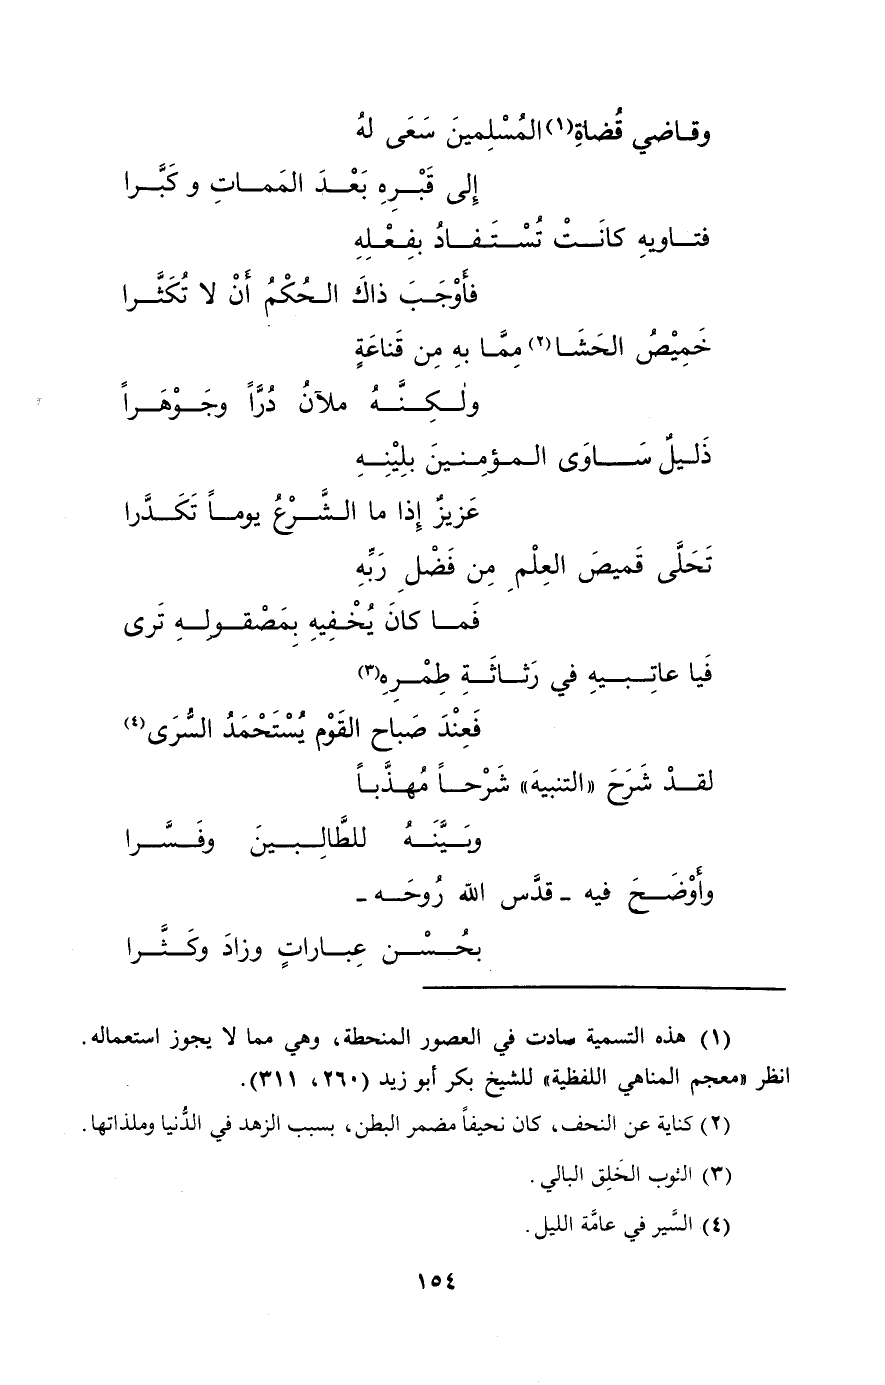 وقـاضي قُضاةِ(١) المُسْلِمينَ سَعَى لهُ
إلى قَبْـرِهِ بَعْـدَ المَمـاتِ و كَبَّـرا
فتـاويهِ كانَـتْ تُسْـتَـفـادُ بفِـعْـلِهِ
فأَوْجَـبَ ذاكَ الـحُكْمُ أَنْ لا تُكَثَّـرا
خَمِيْصُ الحَشَـا(٢) مِمَّـا بهِ مِن قَناعَةٍ
ولٰـكِـنَّـهُ ملآنُ دُرَّاً وجَـوْهَـراً
ذَلـيلٌ سَـاوَى الـمـؤمِـنـينَ بلِيْنِـهِ
عَزيزٌ إذا ما الـشَّـرْعُ يومـاً تَكَـدَّرا
تَحَلَّى قَميصَ العِلْمِ مِن فَضْلِ رَبِّهِ
فَمـا كانَ يُخْـفِيهِ بِمَصْقـولِـهِ تَرى
فَيا عاتِـبـيهِ في رَثـاثَـةِ طِمْـرِهِ(٣)
فَعِنْدَ صَباحِ القَوْمِ يُسْتَحْمَدُ السُّرَى(٤)
لقـدْ شَرَحَ «التنبيهَ» شَرْحـاً مُهـذَّبـاً
وبَـيَّنَـهُ للطَّالِـبـينَ وفَـسَّـرا
وأَوْضَـحَ فيه ـ قدَّس الله رُوحَـه ـ
بحُـسْـنِ عِبـاراتٍ وزادَ وكَـثَّـرا
(١) هذه التسمية سادت في العصور المنحطة، وهي مما لا يجوز استعماله.
انظر «معجم المناهي اللفظية» للشيخ بكر أبو زيد (٢٦٠، ٣١١).
(٢) كناية عن النحف، كان نحيفاً مضمر البطن، بسبب الزهد في الدُّنيا وملذاتها.
(٣) الثوب الخَلِق البالي.
(٤) السَّير في عامَّة الليل.
١٥٤